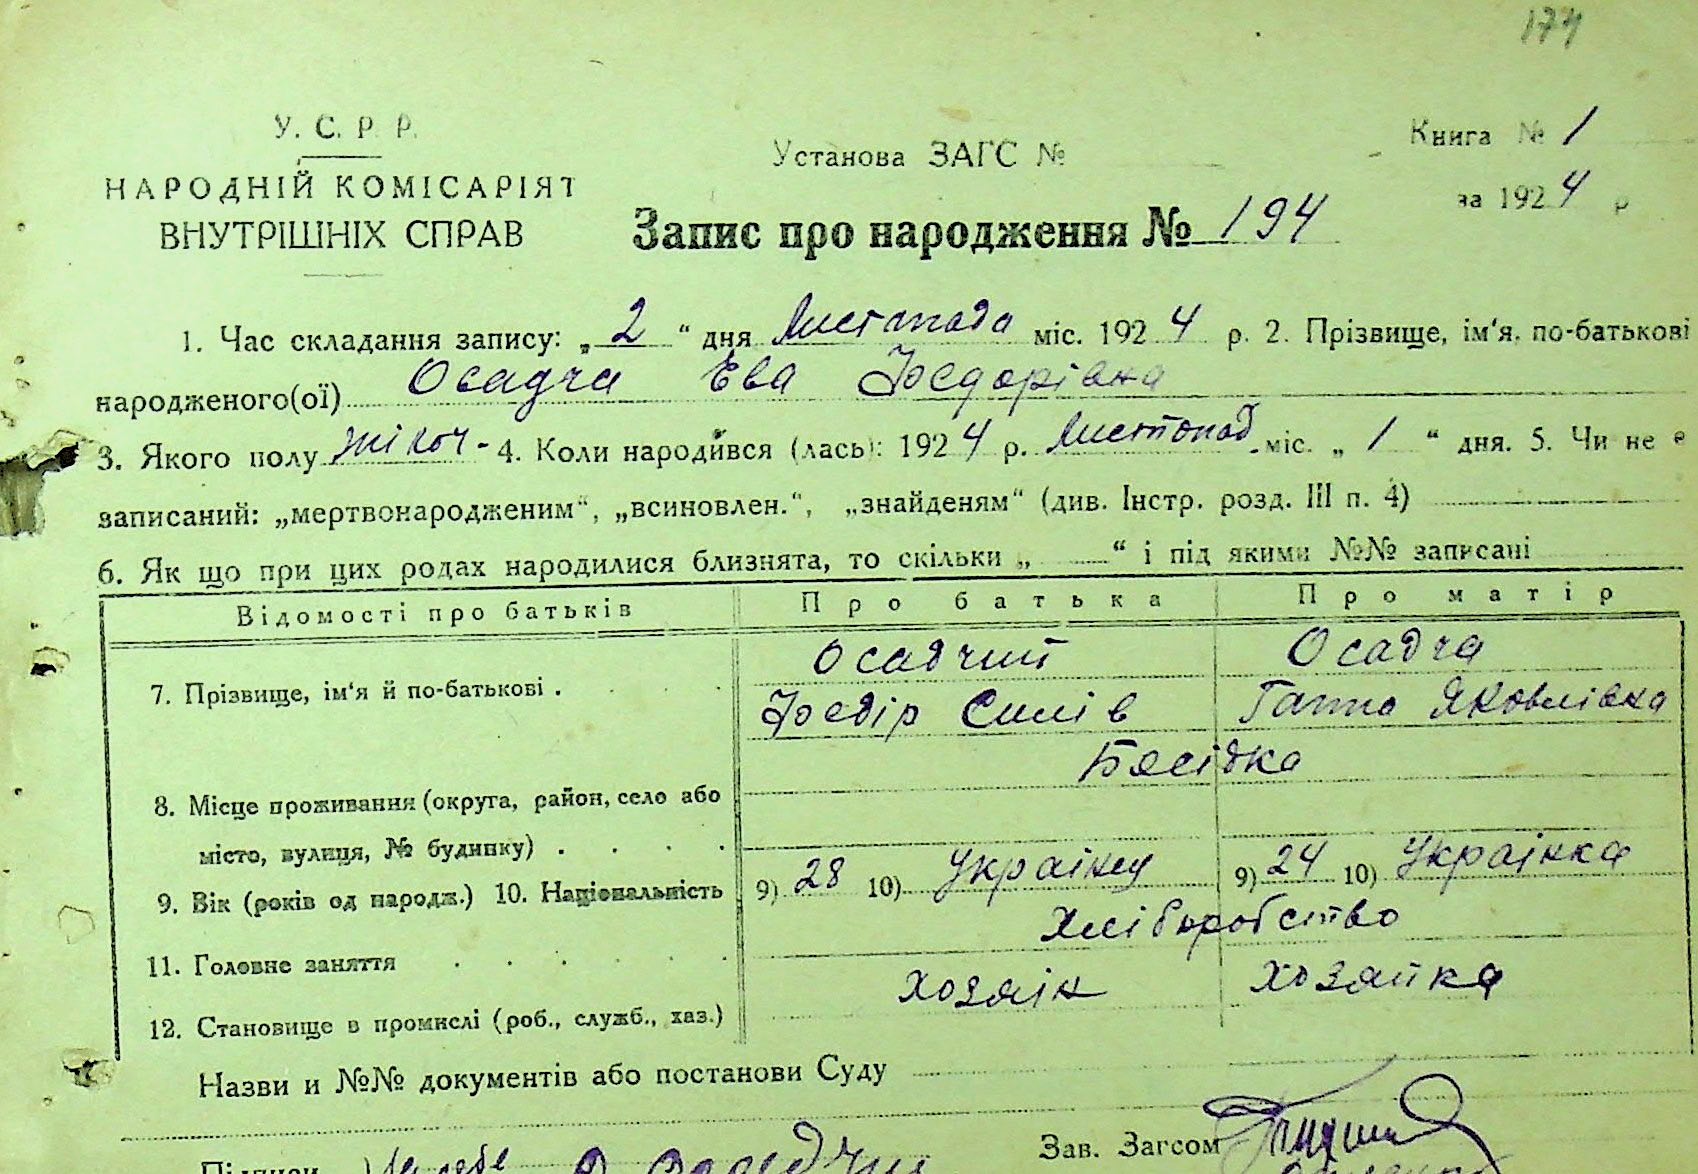 174
У. С. Р. Р.
НАРОДНІЙ КОМІСАРІЯТ
ВНУТРІШНІХ СПРАВ
Установа ЗАГС №
Книга № 1
за 1924 р
Запис про народження № 194
1. Час складання запису: „ 2 “ дня Листопада міс. 1924 р. 2. Прізвище, ім‘я, по-батькові
народженого(ої) Осадча Ева Федорівна
3. Якого полу жіноч- 4. Коли народився (лась): 1924 р. Листопад. міс. „ 1 “ дня. 5. Чи не е
записаний: „мертвонародженим“, „всиновлен.“, „знайденям“ (див. Інстр. розд. III п. 4)
6. Як що при цих родах народилися близнята, то скільки „ “ і під якими №№ записані
Відомості про батьків Про батька Про матір
7. Прізвище, ім‘я й по-батькові . Осадчий Осадча
Федір Силів Ганна Яковлівна
8. Місце проживання (округа, район, село або
місто, вулиця, № будинку) . . . . Бесідка
9. Вік (років од народж.) 10. Національність 9) 28 10) Українец 9) 24 10) Українка
11. Головне заняття . . . . . . Хліборобство
12. Становище в промислі (роб., служб., хаз.) хозяін хозяйка
Назви и №№ документів або постанови Суду
Підписи Осадчий
Зав. Загсом